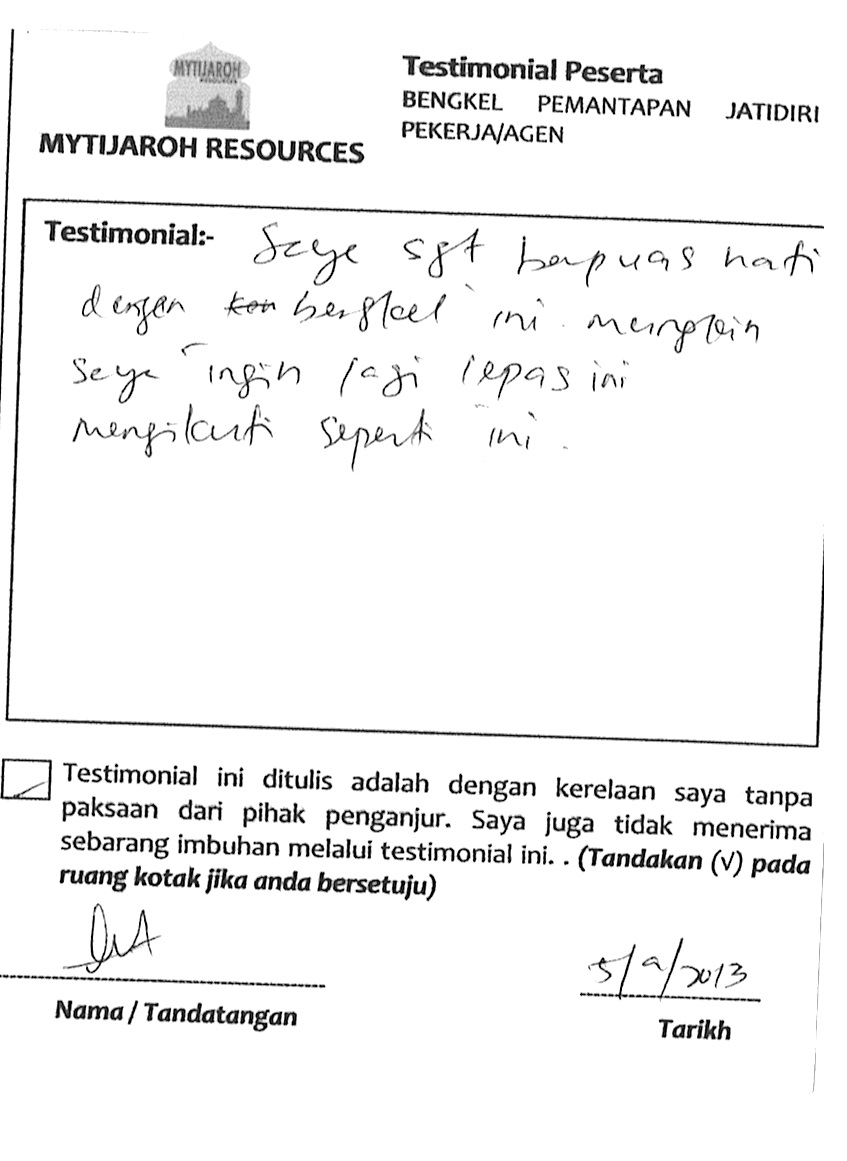 MYTIJAROH
RESOURCES
MYTIJAROH RESOURCES
Testimonial Peserta
BENGKEL PEMANTAPAN JATIDIRI
PEKERJA/AGEN
Testimonial:- Saye sgt berpuas hati
dengan bengkel ini mungkin
saye ingin lagi lepas ini
mengikuti seperti ini.
Testimonial ini ditulis adalah dengan kerelaan saya tanpa
paksaan dari pihak penganjur. Saya juga tidak menerima
sebarang imbuhan melalui testimonial ini. . (Tandakan (√) pada
ruang kotak jika anda bersetuju)
5/9/2013
Nama / Tandatangan
Tarikh